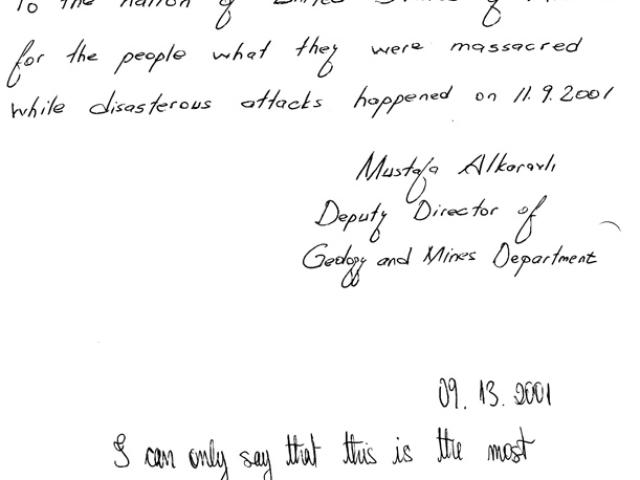 To the nation of United States of
for the people what they were massacred
while disasterous attacks happened on 11.9.2001
Mustafa Alkaravlı
Deputy Director of
Geology and Mines Department
09. 13. 2001
I can only say that this is the most